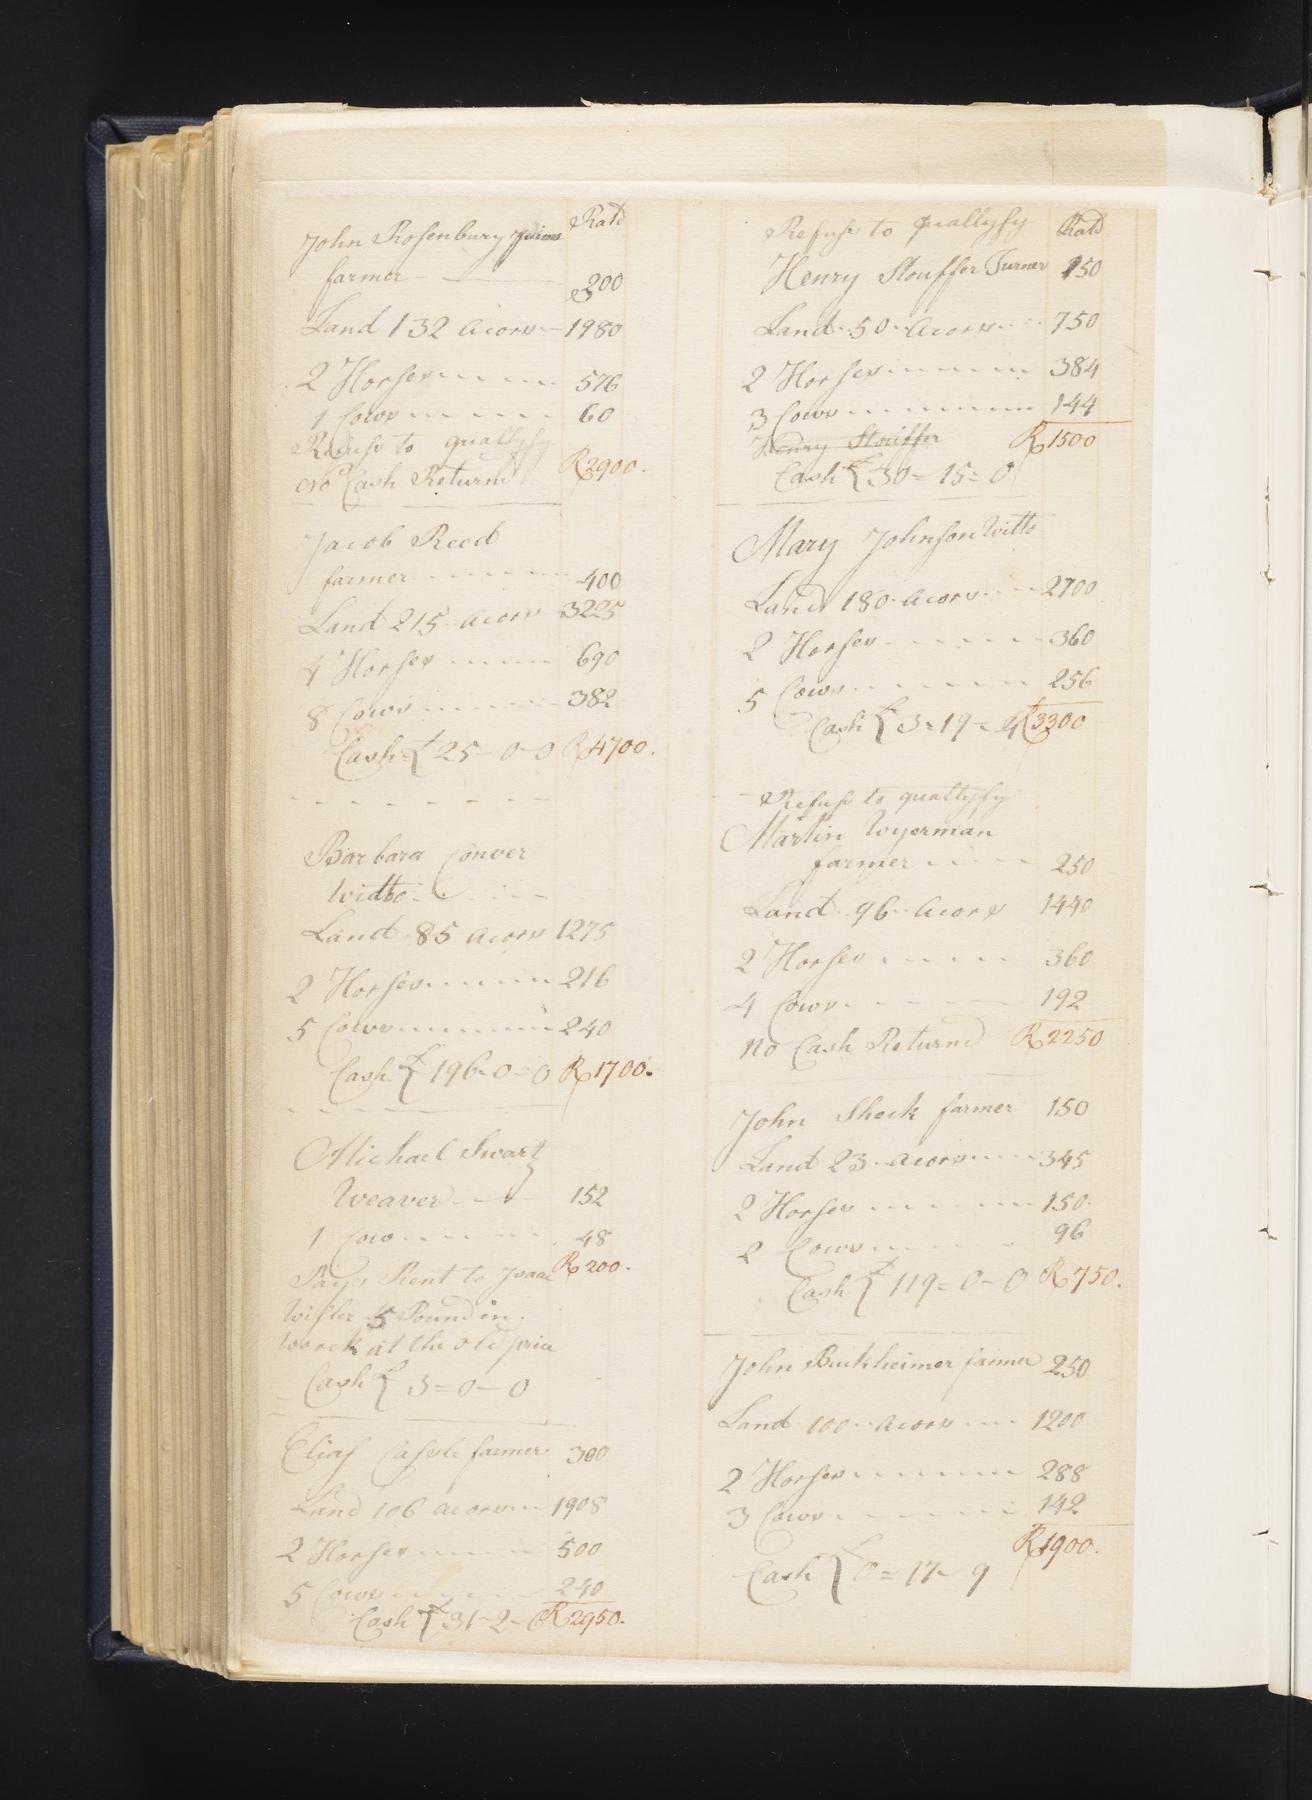 Ratd
John Rosenbury
farmer 200
Land 132 acors 1980
2 Horses 576
1 Cows 60
Refuse to quallyfy
No Cash Returnd R 2900.
Jacob Reed
farmer 400
Land 215 acors 3225
4 Horses 690
8 Cows 382
Cash £ 25-0-0 R 4700.
Barbara Conver
Widto
Land 85 acors 1275
2 Horses 216
5 Cows 240
Cash £ 196-0=0 R 1700.
Michael Swartz
Weaver 152
1 Cow 48
Pays Rent to Isaac R 200.
Wisler 5 Pound in
Worck at the old price
Cash £ 3=0-0
Elias farmer 300
Land 106 acors 1908
2 Horses 500
5 Cows 240
Cash £ 31-2- R 2950.
Refuse to quallyfy Ratd
Henry Stouffer Turner 250
Land 50 acors 750
2 Horses 384
3 Cows 144
Henry Stouffer R 1500
Cash £ 30=15=0
Mary Johnson Witto
Land 180 acors 2700
2 Horses 360
5 Cows 256
Cash £ 3=19= R 3300
Refuse to quallyfy
Martin Wyerman
farmer 250
Land 96 acors 1440
2 Horses 360
4 Cows 192
No Cash Returnd R 2250
John Sheck farmer 150
Land 23 acors 345
2 Horses 150
2 Cows 96
Cash £ 119=0-0 R 750.
John Buckheimer farmer 250
Land 100 acors 1200
2 Horses 288
3 Cows 142
R 1900.
Cash £ 0=17-9